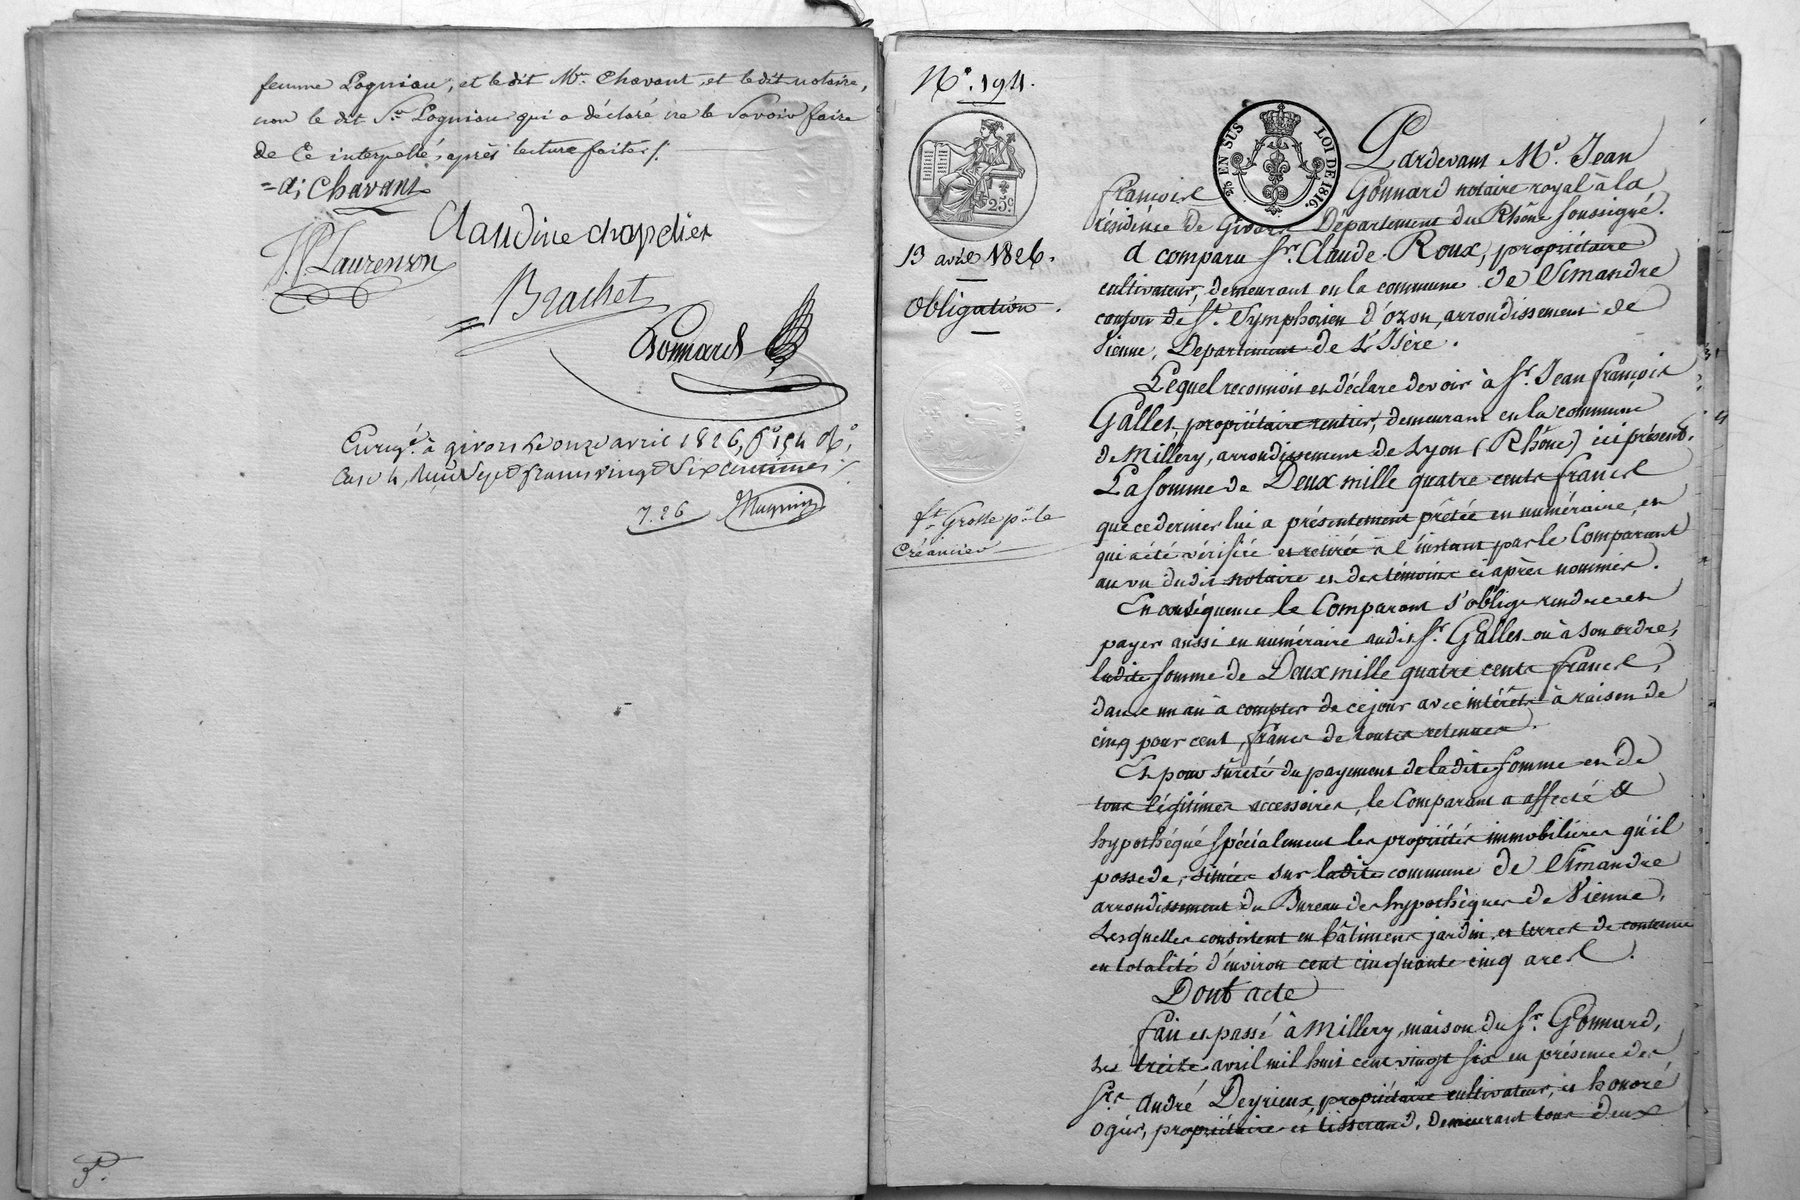 femme Pogniau, et le dit Mr. Chavant, et le dit notaire,
non le dit Sr. Pogniau qui a déclaré ne le Savoir faire
de Ce interpellé, après lecture faite ./.
= A; Chavant
Claudine chapelier
J.P. Laurenson
Brachet
Gonnard
Enregé. à givors le onze avril 1826, fo. 154 Ro.
Case 4. Reçu Sept francs vingt Six centimes
7.26
3e.
No. 194.
25c.
25 EN SUS
LOI DE 1816.
13 avril 1826.
Obligation.
ft. Grosse pr. le
Créancier
Pardevant Me. Jean
françois Gonnard notaire royal à la
résidence de Givors Département du Rhône Soussigné.
A comparu Sr. Claude Roux, propriétaire
cultivateur, demeurant en la commune de Simandre
canton de St. Symphorien d'ozon, arrondissement de
Vienne, Département de L'Isère.
Lequel reconnoit et déclare devoir à Sr. Jean françois
Galles, propriétaire rentier, demeurant en la commune
de Millery, arrondissement de Lyon (Rhône) ici présent.
La Somme de Deux mille quatre cents francs
que ce dernier lui a présentement prêtée en numéraire, en
qui a été vérifiée et retirée à l'instant par le Comparant
au vu dudit notaire et des témoins ci après nommés.
En conséquence le Comparant s'oblige rendre et
payer aussi en numéraire audit Sr. Galles ou à Son ordre,
ladite Somme de Deux mille quatre cents francs,
dans un an à compter de ce jour avec intérêts à raison de
cinq pour cent, francs de toutes retenues.
Et pour Sûreté du payement de ladite Somme et de
tous légitimes accessoires, le Comparant a affecté &
hypothéqué Spécialement les propriétés immobilières qu'il
possede, situées sur ladite commune de Simandre
arrondissement du Bureau des hypothèques de Vienne,
Lesquelles consistent en bâtimens jardin, et terres de contenue
en totalité d'environ cent cinquante cinq ares.
Dont acte
fait et passé à Millery, maison du Sr. Gonnard,
Le treize avril mil huit cent vingt six en présence des
Srs. André Deyrieux, propriétaire cultivateur, et honoré
Ogier, propriétaire et tisserand, demeurant tous deux